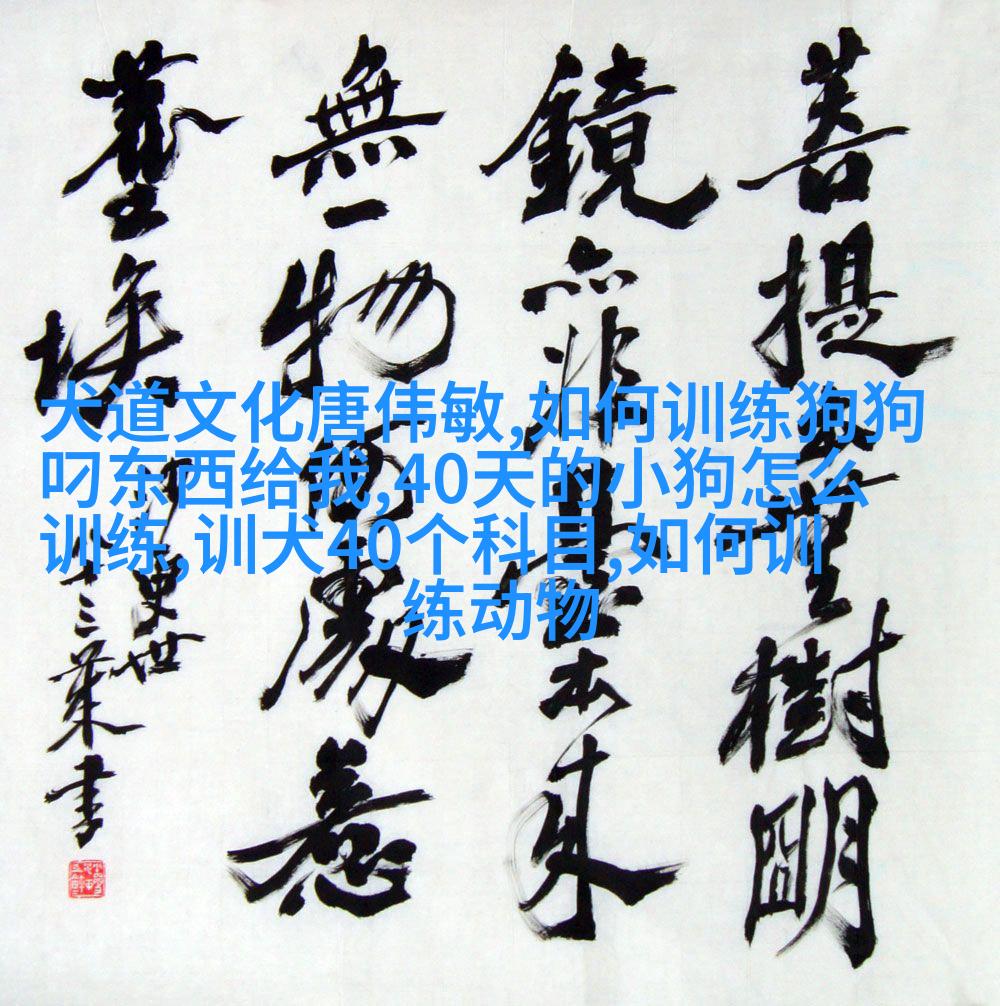 菩提無樹明
鏡亦非臺本來
無一物何處惹
塵埃
史世
十三葉書
犬道文化唐伟敏,如何训练狗狗
叼东西给我,40天的小狗怎么
训练,训犬40个科目,如何训
练动物